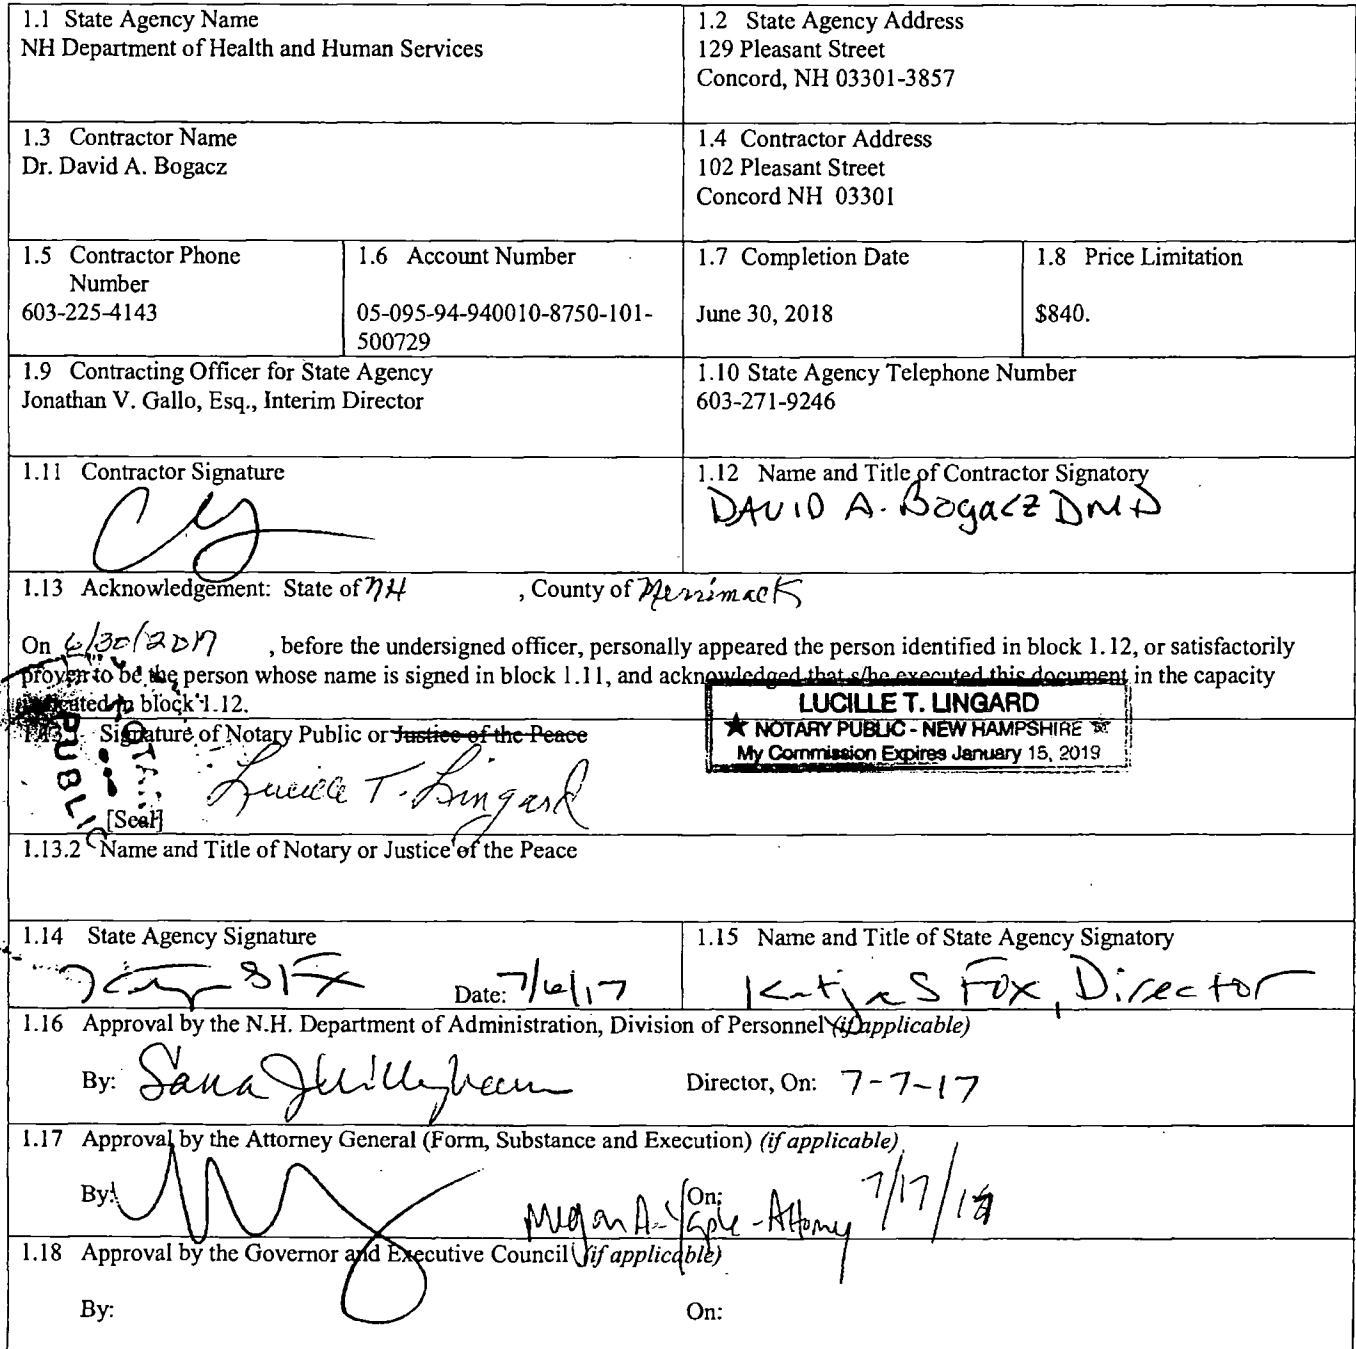 1.1 State Agency Name
NH Department of Health and Human Services
1.2 State Agency Address
129 Pleasant Street
Concord, NH 03301-3857
1.3 Contractor Name
Dr. David A. Bogacz
1.4 Contractor Address
102 Pleasant Street
Concord NH 03301
1.5 Contractor Phone
Number
603-225-4143
1.6 Account Number
05-095-94-940010-8750-101-
500729
1.7 Completion Date
June 30, 2018
1.8 Price Limitation
$840.
1.9 Contracting Officer for State Agency
Jonathan V. Gallo, Esq., Interim Director
1.10 State Agency Telephone Number
603-271-9246
1.11 Contractor Signature
1.12 Name and Title of Contractor Signatory
DAVID A. Bogacz DMD
1.13 Acknowledgement: State of NH , County of Merrimack
On 6/30/2017 , before the undersigned officer, personally appeared the person identified in block 1.12, or satisfactorily
proven to be the person whose name is signed in block 1.11, and acknowledged that s/he executed this document in the capacity
block 1.12.
LUCILLE T. LINGARD
★ NOTARY PUBLIC - NEW HAMPSHIRE ★
My Commission Expires January 15, 2019
Signature of Notary Public or Justice of the Peace
PUBLIC
Lucille T. Lingard
[Seal]
1.13.2 Name and Title of Notary or Justice of the Peace
1.14 State Agency Signature
Date: 7/6/17
1.15 Name and Title of State Agency Signatory
Katja S Fox, Director
1.16 Approval by the N.H. Department of Administration, Division of Personnel (if applicable)
By:
Director, On: 7-7-17
1.17 Approval by the Attorney General (Form, Substance and Execution) (if applicable)
By:
Megan A. Yaple - Attorney
On: 7/17/17
1.18 Approval by the Governor and Executive Council (if applicable)
By:
On: